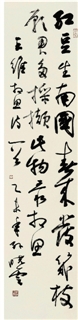 紅豆生南國春来發幾枝
願君多採擷此物最相思
王維相思詩一首乙未